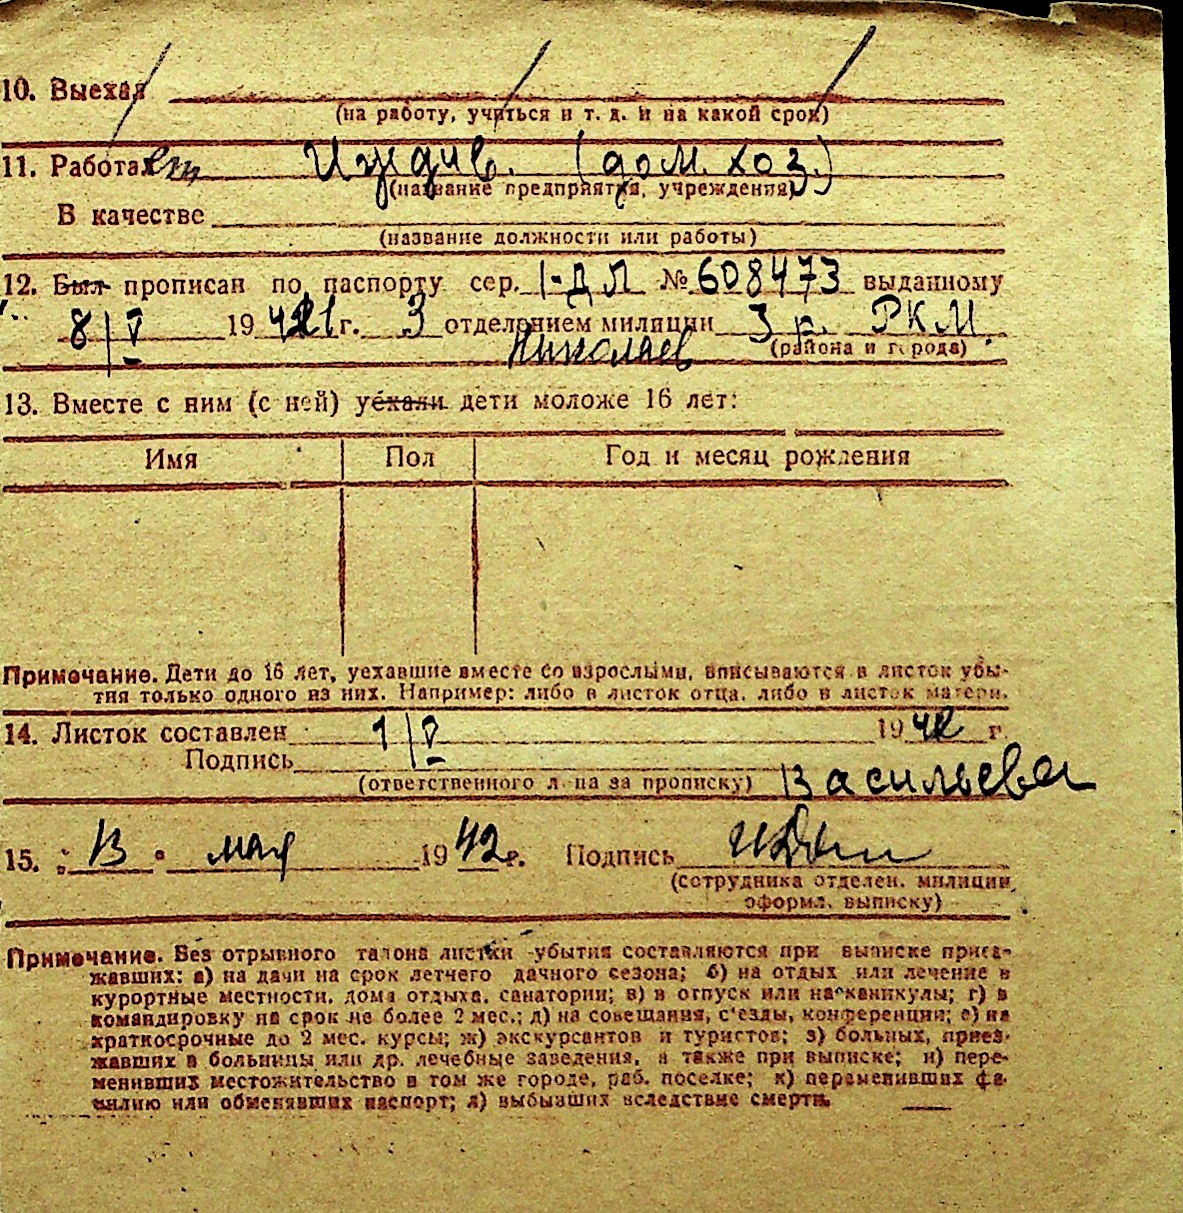 10. Выехал
(на работу, учиться и т. д. и на какой срок)
11. Работает Иждив. (дом. хоз.)
(название предприятия, учреждения)
В качестве
(название должности или работы)
12. Был прописан по паспорту сер. I-ДЛ № 608473 выданному
8/V 1941 г. 3 отделением милиции 3 р. РКМ
Николаев (района и города)
13. Вместе с ним (с ней) уехали дети моложе 16 лет:
Имя Пол Год и месяц рождения
Примечание. Дети до 16 лет, уехавшие вместе со взрослыми, вписываются в листок убы-
тия только одного из них. Например: либо в листок отца, либо в листок матери.
14. Листок составлен 1/V 1942 г.
Подпись Васильева
(ответственного лица за прописку)
15. „13" мая 1942 г. Подпись
(сотрудника отделен. милиции,
оформл. выписку)
Примечание. Без отрывного талона листки убытия составляются при выписке приез-
жавших: а) на дачи на срок летнего дачного сезона; б) на отдых или лечение в
курортные местности, дома отдыха, санатории; в) в отпуск или на каникулы; г) в
командировку на срок не более 2 мес.; д) на совещания, с'езды, конференции; е) на
краткосрочные до 2 мес. курсы; ж) экскурсантов и туристов; з) больных, приез-
жавших в больницы или др. лечебные заведения, а также при выписке; и) пере-
менивших местожительство в том же городе, раб. поселке; к) переменивших фа-
милию или обменявших паспорт; л) выбывших вследствие смерти.